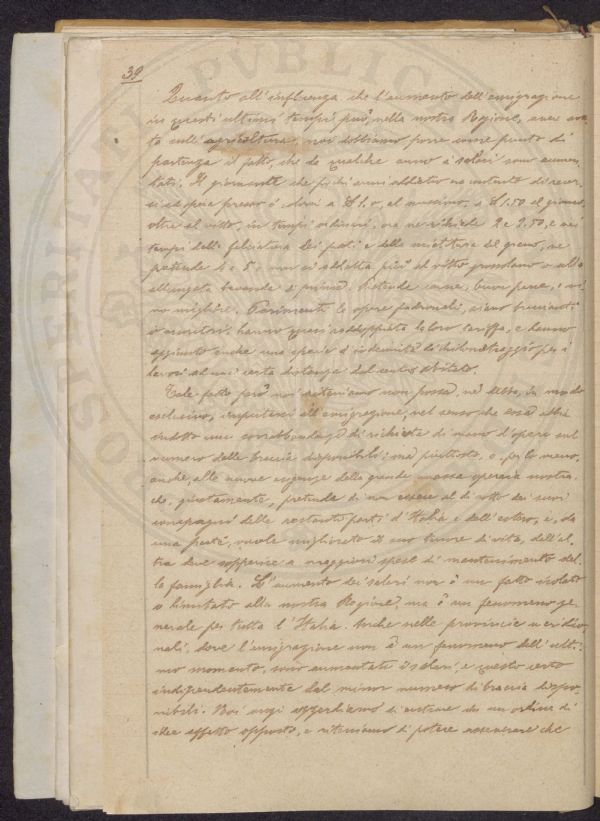 39
Quanto all'influenza che l'aumento dell'emigrazione
in questi ultimi tempi può, nella nostra Regione, aver avu-
to sull'agricoltura, noi dobbiamo porre come punto di
partenza il fatto, che da qualche anno i salari sono aumen-
tati. Il giornaliero che pochi anni addietro era contento di recar-
si ad opera presso i coloni a £ 1. o, al massimo, a £ 1.50 al giorno,
oltre al vitto, in tempi ordinari, ora ne richiede 2 e 2.50, e nei
tempi della falciatura dei prati e della mietitura del grano, ne
pretende 4 e 5; non si adatta più al vitto grossolano o alla
allungata bevanda di prima. Pretende carne, buon pane, vi-
no migliore. Parimenti le opere padronali, siano braccianti
o muratori, hanno quasi raddoppiata la loro tariffa, e hanno
aggiunto anche una specie d'indennità di chilometraggio per i
lavori ad una certa distanza dal centro abitato.
Tale fatto però noi riteniamo non possa, nè debba, in modo
esclusivo, imputarsi all'emigrazione, nel senso che essa abbia
indotto una sovrabbondanza di richieste di mano d'opera sul
numero delle braccia disponibili; ma piuttosto, o, per lo meno,
anche, alle nuove esigenze della grande massa operaia nostra,
che, giustamente, pretende di non essere al di sotto dei suoi
compagni delle restanti parti d'Italia e dell'estero, e, da
una parte, vuole migliorato il suo tenore di vita, dell'al-
tra deve sopperire a maggiori spese di mantenimento del-
la famiglia. L'aumento dei salari non è un fatto isolato
o limitato alla nostra Regione, ma è un fenomeno ge-
nerale per tutta l'Italia. Anche nelle provincie meridio-
nali, dove l'emigrazione non è un fenomeno dell'ulti-
mo momento, sono aumentati i salari, e questo certo
indipendentemente dal minor numero di braccia dispo-
nibili. Noi anzi crediamo di entrare in un ordine di
idee affatto opposto, e riteniamo di potere asseverare che